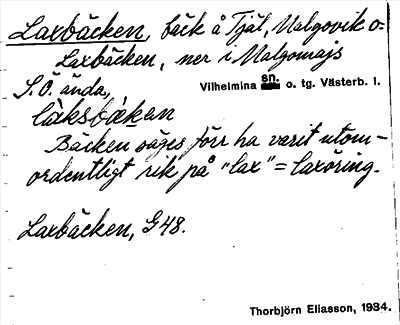 Laxbäcken, bäck å Tjäl, Malgovik o.
Laxbäcken, ner i Malgomajs
S.Ö. ända,
Vilhelmina sn. o. tg. Västerb. l.
làksbäken
Bäcken säges förr ha varit utom-
ordentligt rik på "lax" = laxöring.
Laxbäcken, G 48.
Thorbjörn Eliasson, 1934.